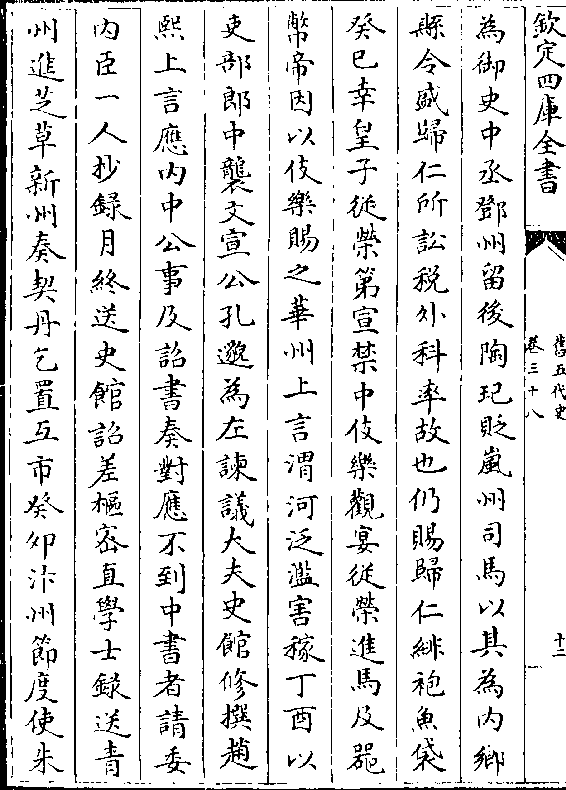 欽定四庫全書
舊五代史
卷三十八
十二
為御史中丞鄧州留後陶玘貶嵐州司馬以其為內鄉
縣令盛歸仁所訟稅外科率故也仍賜歸仁緋袍魚袋
癸巳幸皇子從榮第宣禁中伎樂觀宴從榮進馬及器
幣帝因以伎樂賜之華州上言渭河泛濫害稼丁酉以
吏部郎中襲文宣公孔邈為左諫議大夫史館修撰趙
熙上言應內中公事及詔書奏對應不到中書者請委
內臣一人抄錄月終送史館詔差樞密直學士錄送青
州進芝草新州奏契丹乞置互市癸卯汴州節度使朱